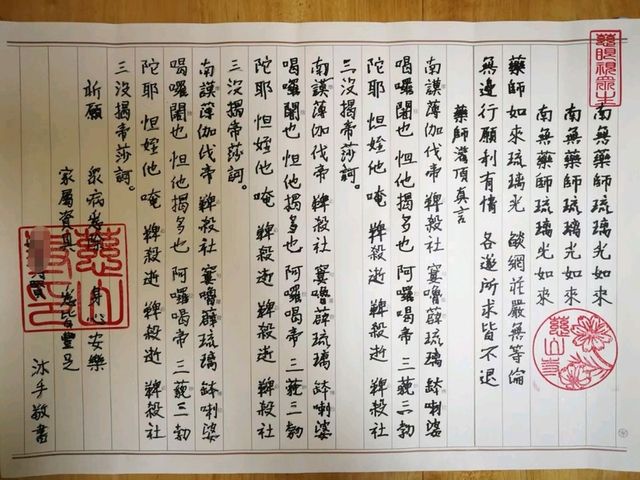 慈眼視眾生
南無藥師琉璃光如來
南無藥師琉璃光如來
南無藥師琉璃光如來
藥師如來琉璃光 燄網莊嚴無等倫
無邊行願利有情 各遂所求皆不退
慈山寺
藥師灌頂真言
南謨薄伽伐帝 鞞殺社 窶嚕薜琉璃 鉢喇婆
喝囉闍也 怛他揭多也 阿囉喝帝 三藐三勃
陀耶 怛姪他 唵 鞞殺逝 鞞殺逝 鞞殺社
三沒揭帝莎訶。
南謨薄伽伐帝 鞞殺社 窶嚕薜琉璃 鉢喇婆
喝囉闍也 怛他揭多也 阿囉喝帝 三藐三勃
陀耶 怛姪他 唵 鞞殺逝 鞞殺逝 鞞殺社
三沒揭帝莎訶。
南謨薄伽伐帝 鞞殺社 窶嚕薜琉璃 鉢喇婆
喝囉闍也 怛他揭多也 阿囉喝帝 三藐三勃
陀耶 怛姪他 唵 鞞殺逝 鞞殺逝 鞞殺社
三沒揭帝莎訶。
祈願 眾病 身心安樂
家屬資具 豐足
慈山寺印
沐手敬書